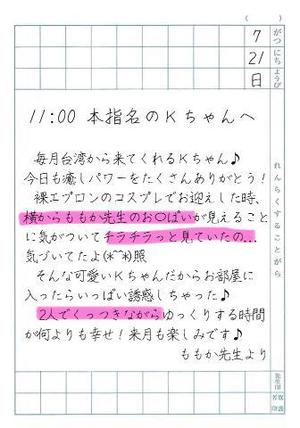 ( )
7 がつ
21 にち
日 ようび
れんらくすることがら
11:00 本指名のKちゃんへ
毎月台湾から来てくれるKちゃん♪
今日も癒しパワーをたくさんありがとう!
裸エプロンのコスプレでお迎えした時、
横からももか先生のお〇ぱいが見えること
に気がついてチラチラっと見ていたの…
気づいてたよ(*^^*)照
そんな可愛いKちゃんだからお部屋に
入ったらいっぱい誘惑しちゃった♪
2人でくっつきながらゆっくりする時間
が何よりも幸せ!来月も楽しみです♪
ももか先生より